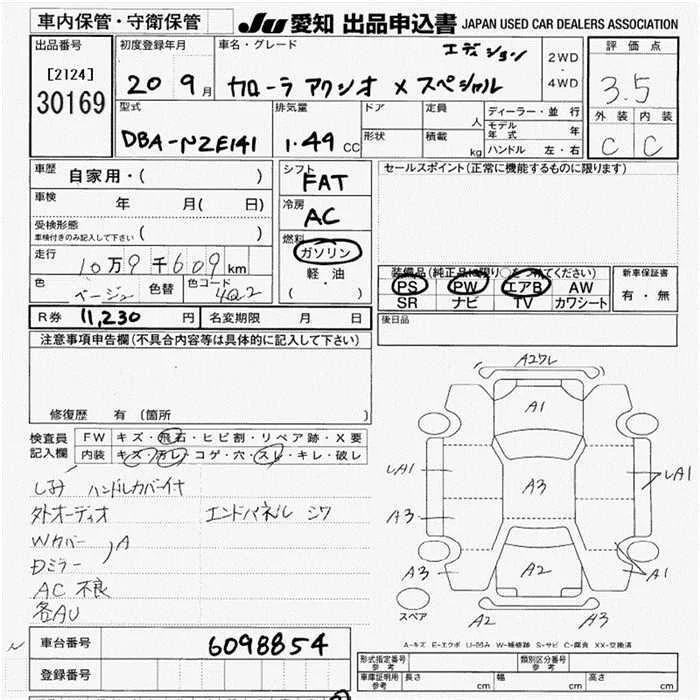 車内保管・守衛保管
JU 愛知 出品申込書 JAPAN USED CAR DEALERS ASSOCIATION
出品番号
[2124]
30169
初度登録年月
20 9月
車名・グレード
エディション
カローラ アクシオ X スペシャル
2WD
・
4WD
評価点
3.5
外装 内装
C C
型式
DBA-NZE141
排気量
1.49 CC
ドア
形状
定員 人
積載 kg
ディーラー・並行
モデル年式 年
ハンドル 左・右
車歴 自家用・( )
車検 年 月( 日)
受検形態
車検付きのみ記入して下さい ( )
走行 10万9千609km
色 ベージュ 色替 色コード 4Q2
シフト
FAT
冷房
AC
燃料
ガソリン
軽・油
( )
セールスポイント(正常に機能するものに限ります)
装備品(純正品に限り○をつけてください)
PS PW エアB AW
SR ナビ TV カワシート
新車保証書
有・無
R券 11,230 円 名変期限 月 日
後日品
注意事項申告欄(不具合内容等は具体的に記入して下さい)
修復歴 有(箇所 )
検査員記入欄
FW キズ・飛石・ヒビ割・リペア跡・X要
内装 キズ・万レ・コゲ・穴・スレ・キレ・破レ
シミ ハンドルカバーイナ
外オーディオ エンドパネル シワ
Wカバー
Dミラー ) A
AC 不良
各AU
A2ワレ
A1
LA1
LA1
A3
A3
A3
A2
A1
スペア
A2
A3
A-キズ E-エクボ U-凹み W-補修跡 S-サビ C-腐食 XX-交換済
車台番号 6098854
登録番号
型式指定番号
参考
類別区分番号
参考
車庫証明用
参考
長さ cm 幅 cm 高さ cm